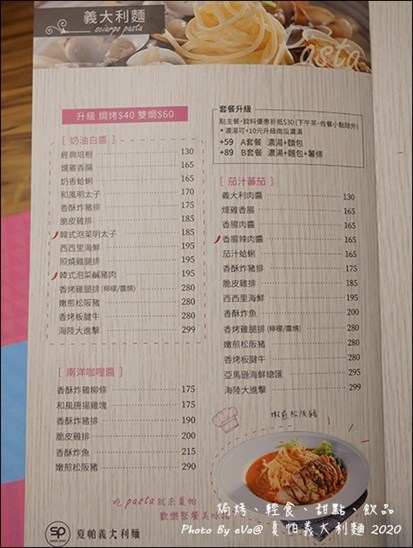 義大利麵
esciarpe pasta
Pasta
升級 焗烤$40 雙焗$60
[ 奶油白醬 ]
經典培根 130
燻雞香腸 165
奶香蛤蜊 165
和風明太子 170
香酥炸豬排 175
脆皮雞排 185
韓式泡菜明太子 185
西西里海鮮 195
照燒雞腿排 195
韓式泡菜鹹豬肉 195
香烤雞腿排 (檸檬/醬燒) 280
嫩煎松阪豬 280
香烤板腱牛 280
海陸大進擊 299
[ 南洋咖哩醬 ]
香酥炸雞柳條 175
和風唐揚雞塊 175
香酥炸豬排 190
脆皮雞排 200
香酥炸魚 215
嫩煎松阪豬 290
吃pasta就來夏帕
歡樂聚餐美味
SP 夏帕義大利麵
套餐升級
點主餐，飲料優惠折抵$30 (下午茶、佐餐小點除外)
* 濃湯可+10元升級南瓜濃湯
+59 A套餐 濃湯+麵包
+89 B套餐 濃湯+麵包+薯條
[ 茄汁蕃茄 ]
義大利肉醬 130
燻雞香腸 165
香腸肉醬 165
香腸辣肉醬 165
茄汁蛤蜊 165
香酥炸豬排 175
脆皮雞排 185
西西里海鮮 195
香酥炸魚 200
香烤雞腿排 (檸檬/醬燒) 280
嫩煎松阪豬 280
香烤板腱牛 280
亞馬遜海鮮總匯 295
海陸大進擊 299
嫩煎松阪豬
焗烤、輕食、甜點、飲品
Photo By eVa@ 夏帕義大利麵 2020